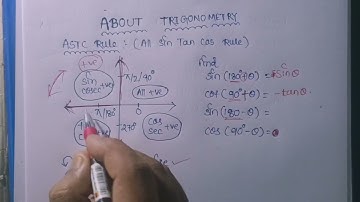 ABOUT TRIGONOMETRY
ASTC Rule :- (All Sin Tan Cos Rule)
+ve
sin
cosec +ve
π/2/90°
All +ve
π/180°
0
270°
cos
sec +ve
find
sin(180°+θ) = -sinθ
cos(90°+θ) = -tanθ
sin(180-θ) =
cos(90°-θ) =